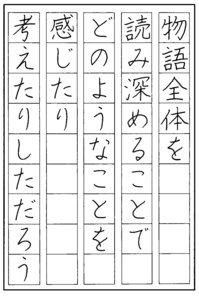 物語全体を
読み深めることで
どのようなことを
感じたり
考えたりしただろう